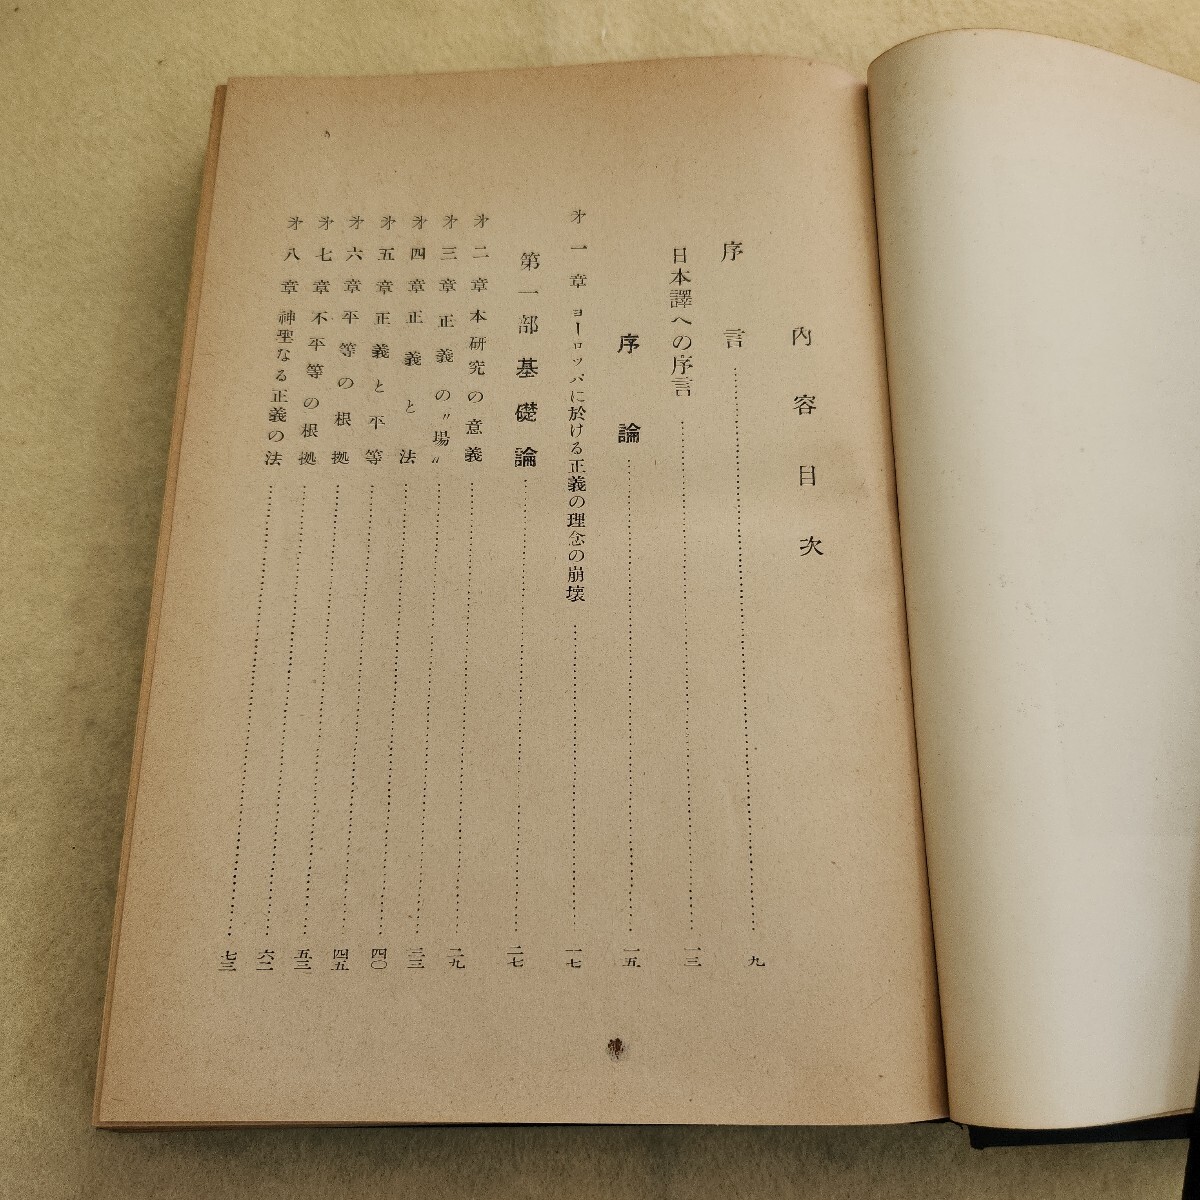 內容目次
序言……九
日本譯への序言……一三
序論……一五
㐧一章 ヨーロッパに於ける正義の理念の崩壊……一七
第一部 基礎論……二七
㐧二章 本研究の意義……二九
㐧三章 正義の〃場〃……三三
㐧四章 正義と法……四〇
㐧五章 正義と平等……四五
㐧六章 平等の根拠……五三
㐧七章 不平等の根拠……六二
㐧八章 神聖なる正義の法……七三